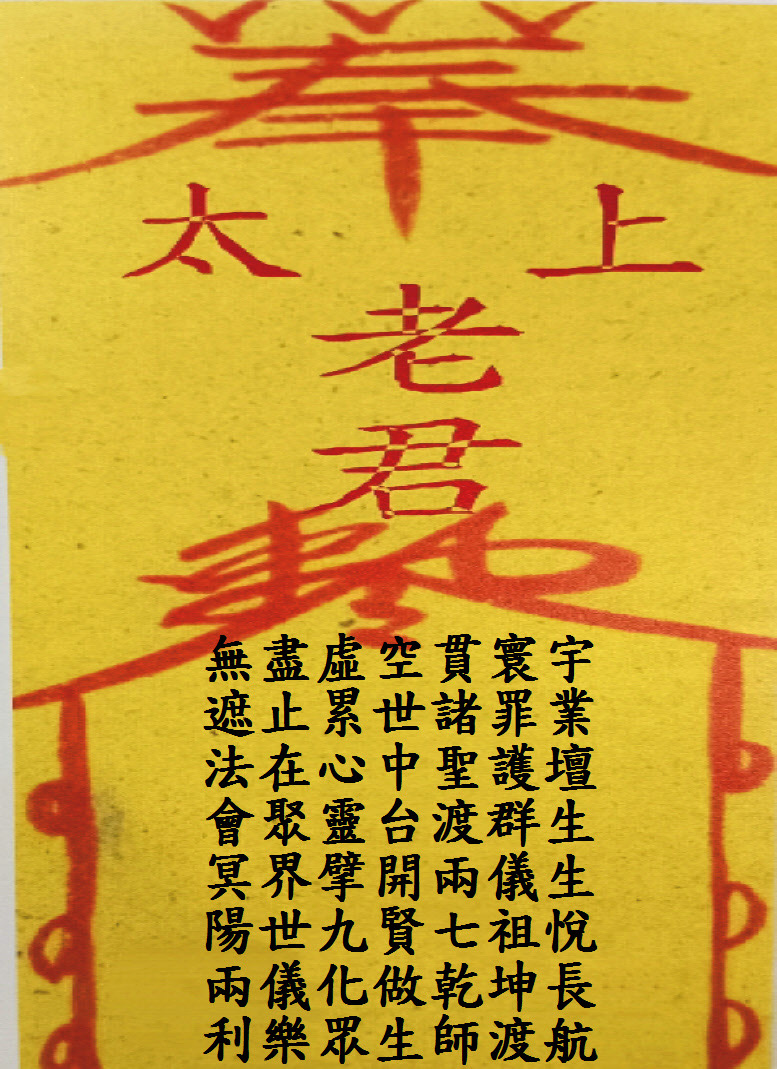 奉
太上
老
君
無盡虛空貫寰宇
遮止累世諸罪業
法在心中聖護壇
會聚靈台渡群生
冥界擘開兩儀生
陽世九賢七祖悅
兩儀化做乾坤長
利樂眾生師渡航